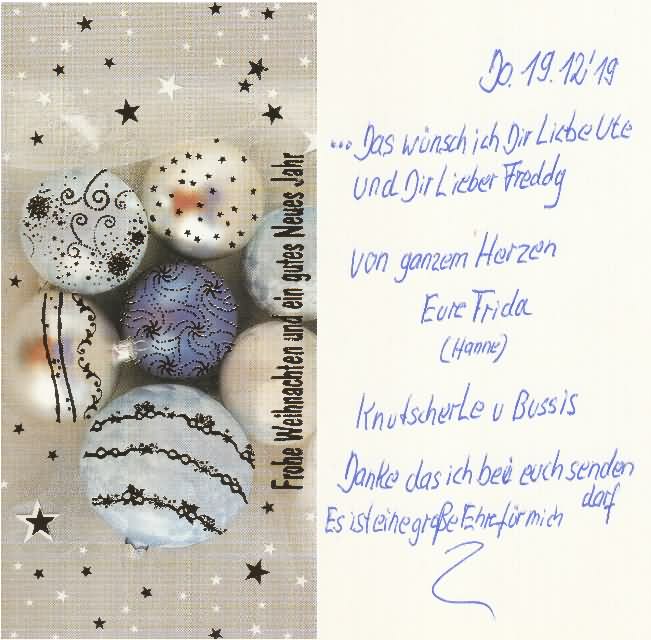 Frohe Weihnachten und ein gutes Neues Jahr
Do. 19.12'19
... Das wünsch ich Dir Liebe Ute
und Dir Lieber Freddy
von ganzem Herzen
Eure Frida
(Hanne)
Knutscherle u Bussis
Danke das ich bei euch senden
darf
Es ist eine große Ehre für mich